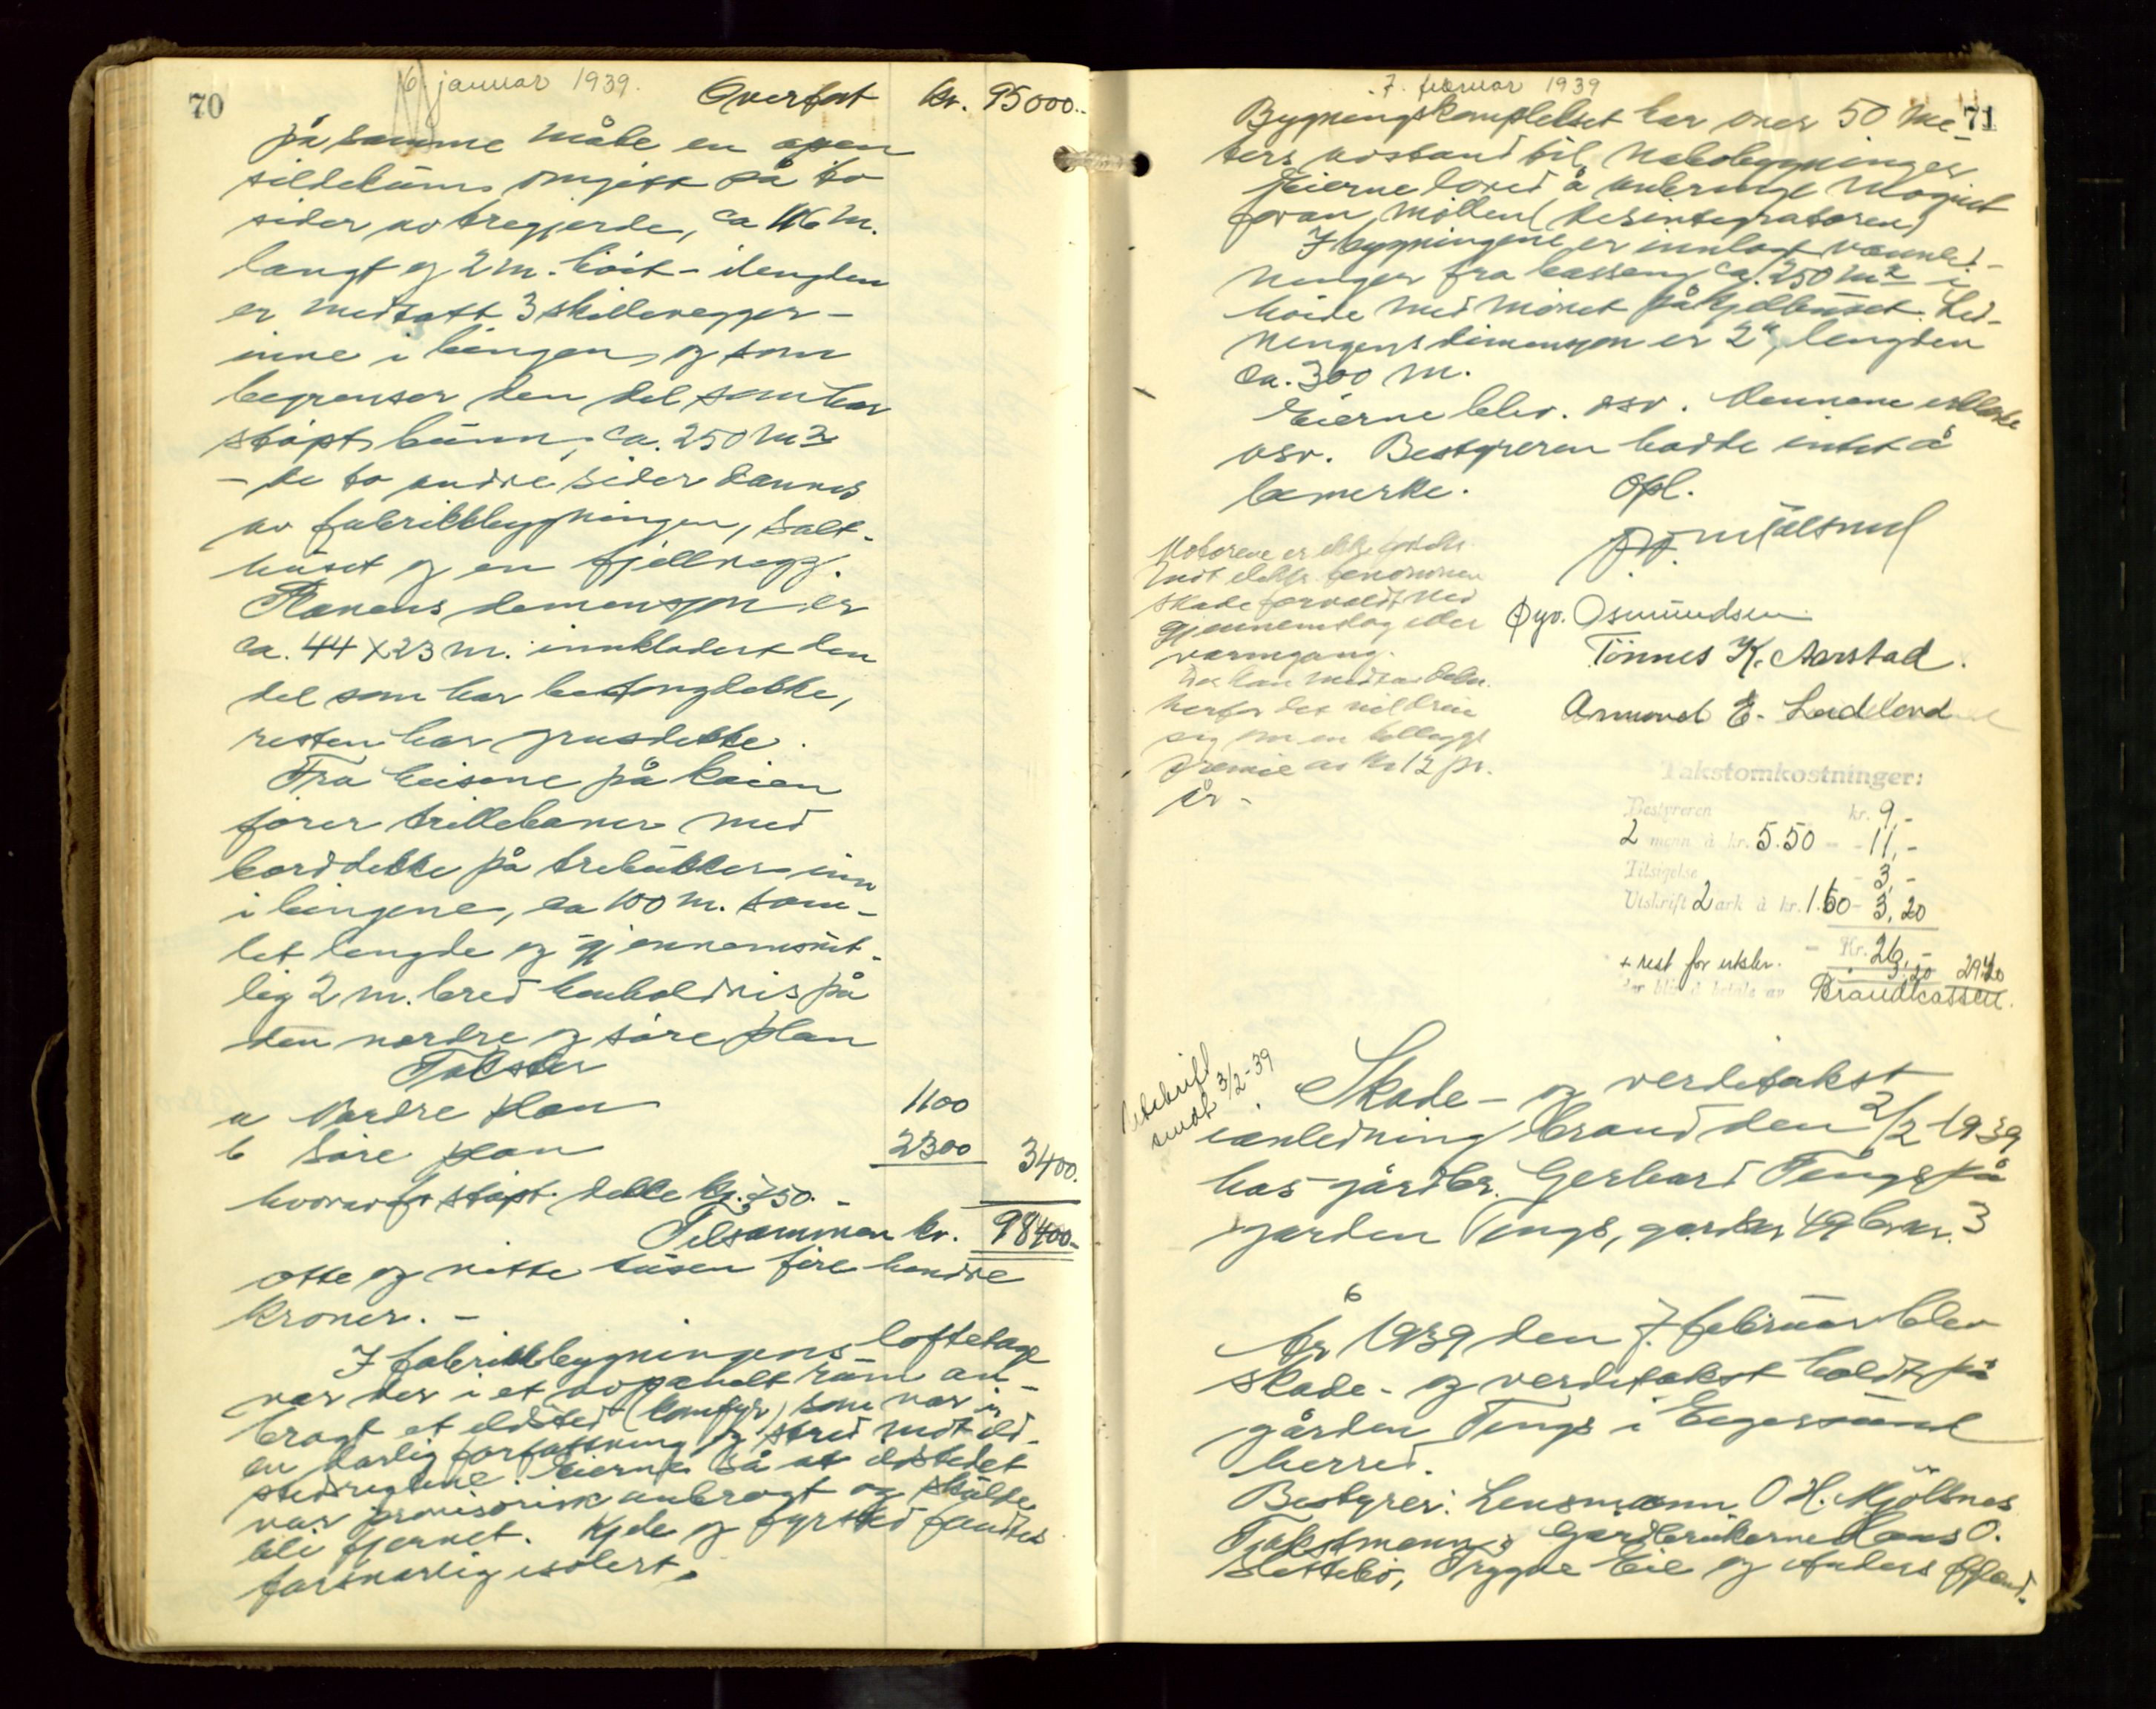 70
6 januar 1939.
Overført kr. 95000.-
på samme måte en åpen
sildebinge omgitt på to
sider av tregjerde, ca 116 m.
langt og 2 m. høit - i lengden
er medtatt 3 skillevegger -
inne i bingen og som
begrenser den del som har
støpt bunn, ca. 250 m2
- de to andre sider dannes
av fabrikkbygningen, salt-
huset og en fjellvegg.
Planens demensjon er
ca. 44 x 23 m. innkludert den
del som har betongdekke,
resten har grusdekke.
Fra heisene på kaien
fører trillebaner med
borddekke på trebukker inn
i bingene, ca 100 m. sam-
let lengde og gjennemsnit-
lig 2 m. bred henholdsvis på
den nordre og søre plan
Takster
a Nordre plan 1100
b Søre plan 2300 3400.
hvorav for støpt dekke kr. 750.-
Tilsammen kr. 98400.-
otte og nitte tusen fire hundre
kroner. -
I fabrikkbygningens loftetage
var der i et avpanelt rum an-
bragt et ildsted (komfyr) som var i
en dårlig forfatning og stred mot ild-
stedsreglene. Eierne sa at ildstedet
var provisorisk anbragt og skulde
bli fjernet. Kjele og fyrsted fandtes
forsvarlig isolert.
7. februar 1939
71
Bygningskomplekset har over 50 me-
ters avstand til nabobygninger
Eierne loved å anbringe magnet
foran møllen (desintegratoren)
I bygningene er innlagt vannled-
ninger fra basseng ca. 250 m2 i
høide med mønet på kjelhuset. Led-
ningens dimensjon er 2", lengden
ca. 300 m.
Eierne blev. osv. Mennene erklærte
osv. Bestyreren hadde intet å
bemerke. Opl.
O H Mjølsnes
Gyo. Osmundsen.
Tönnes K. Aarstad.
Motorene er ikke
mot elektr. fenomener
skade forvoldt ved
gjennemslag eller
varmgang.
herfor det vil dreie
sig om en tilleggs
premie av kr 12 pr.
år -
Takstomkostninger:
Bestyreren kr. 9,-
2 menn à kr. 5.50 - - 11,-
Tilsigelse - 3,-
Utskrift 2 ark à kr. 1.60 - 3,20
Kr. 26,-
+ rest for utskr. 3.20 29.20
der blir å betale av Brandkassen.
Utskrift
sendt 3/2-39
Skade- og verditakst
i anledning brand den 2/2 1939
hos gårdbr. Gerhard Tengs på
garden Tengs, gardsnr 49 brnr. 3
6
År 1939 den 7. februar blev
skade- og verditakst holdt på
gården Tengs i Egersund
herred.
Bestyrer: Lensmann O H. Mjölsnes
Takstmenn: Gårdbrukerne Hans O.
Slettebø, Trygve Eie og Anders